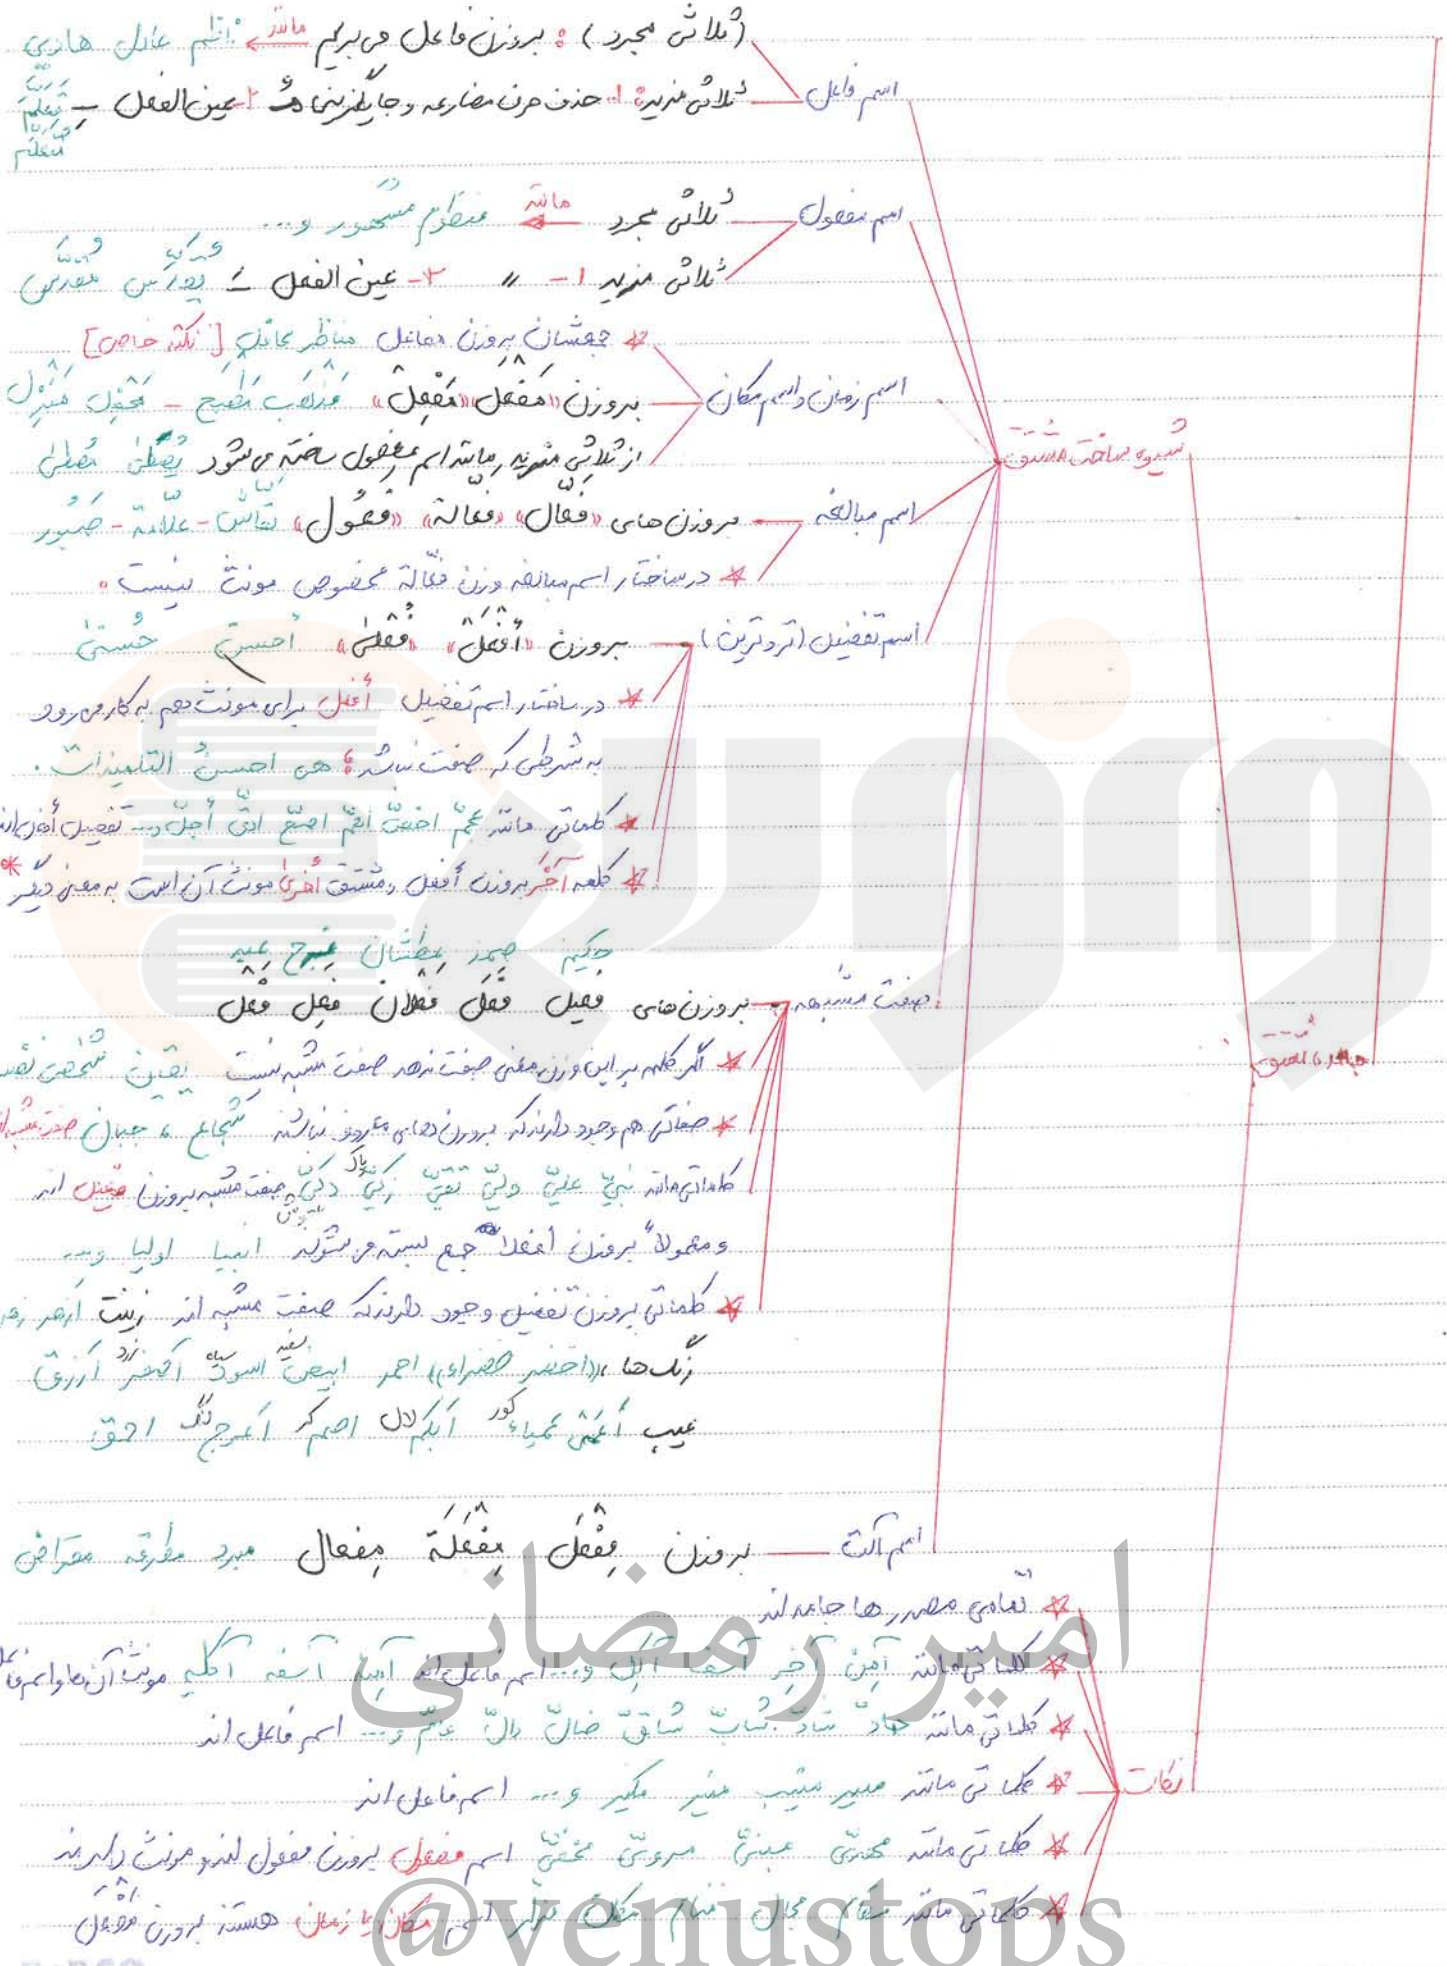 (ثلاثی مجرد) : بروزن فاعل می‌بریم مانند ناظم عادل هادی
اسم فاعل
ثلاثی مزید: ۱- حذف حرف مضارعه و جایگزینی مُـ ۲- عین الفعل ـِ
اسم مفعول
ثلاثی مجرد مانند منظوم مسحور و...
ثلاثی مزید ۱- " ۲- عین الفعل ـَ یُقدَّس مُقدَّس
* جمعشان بروزن مفاعل مناظر محافل [نکته خاص]
اسم زمان و اسم مکان
بروزن «مَفعَل» «مَفعِل» مَطبَخ - مَحفِل مَنزِل
از ثلاثی مزید مانند اسم مفعول ساخته می‌شود
شیوه ساخت مشتق
اسم مبالغه
بروزن های «فَعّال» «فَعّالة» «فَعُول» نقّاش - علّامة - صَبُور
* در ساختار اسم مبالغه وزن فعّالة مخصوص مونث نیست.
اسم تفضیل (تر و ترین)
بروزن «أفعَل» «فُعلی» أحسن حُسنی
* در ساختار اسم تفضیل أفعل برای مونث هم به کار می‌رود
به شرطی که صفت نباشد: هن احسنُ التلمیذات.
* کلماتی مانند اخفّ اصحّ أجلّ و... تفضیل أفعل اند
* کلمه آخَر بروزن أفعل و مشتق اُخری مونث آن است به معنی دیگر *
صفت مشبهه
بروزن های فعیل فَعَل فَعلان فَعِل فَعل
* اگر کلمه بر این وزن معنی صفت ندهد صفت مشبه نیست یقین
* صفاتی هم وجود دارند که بروزن های نباشند شجاع ، جبان صفت مشبه اند
کلماتی مانند نبیّ غنیّ ولیّ تقیّ زکیّ پاک صفت مشبه بروزن فعیل اند
و معمولاً بروزن أفعلاء جمع بسته می‌شوند انبیا اولیا و...
* کلماتی بروزن تفضیل وجود دارند که صفت مشبه اند زینت ازهر
رنگ ها ((اخضر خضراء)) احمر ابیض سفید اسود سیاه اصفر زرد ازرق
عیب أعمی عمیاء کور أبکم لال اصم کر أعرج لنگ احمق
جامد و مشتق
اسم آلت
بروزن مِفعَل مِفعَلَة مِفعال مبرد مطرقه مقراض
* تمامی مصدر ها جامد اند
* کلماتی مانند آمِن آخِر آکِل و... اسم فاعل اند آمِنة آکلة مونث آن ها و اسم فاعل
* کلماتی مانند حادّ شادّ شابّ شاقّ ضالّ دالّ و... اسم فاعل اند
نکات
* کلماتی مانند منیر و... اسم فاعل اند
* کلماتی مانند مبنیّ مرویّ مخفیّ اسم مفعول بروزن مفعول اند و مونث دارند
* کلماتی مانند مقام مجال منام مکان مزار اسم مکان یا زمان هستند بروزن مَفعَل
امیر رمضانی
@venustobs